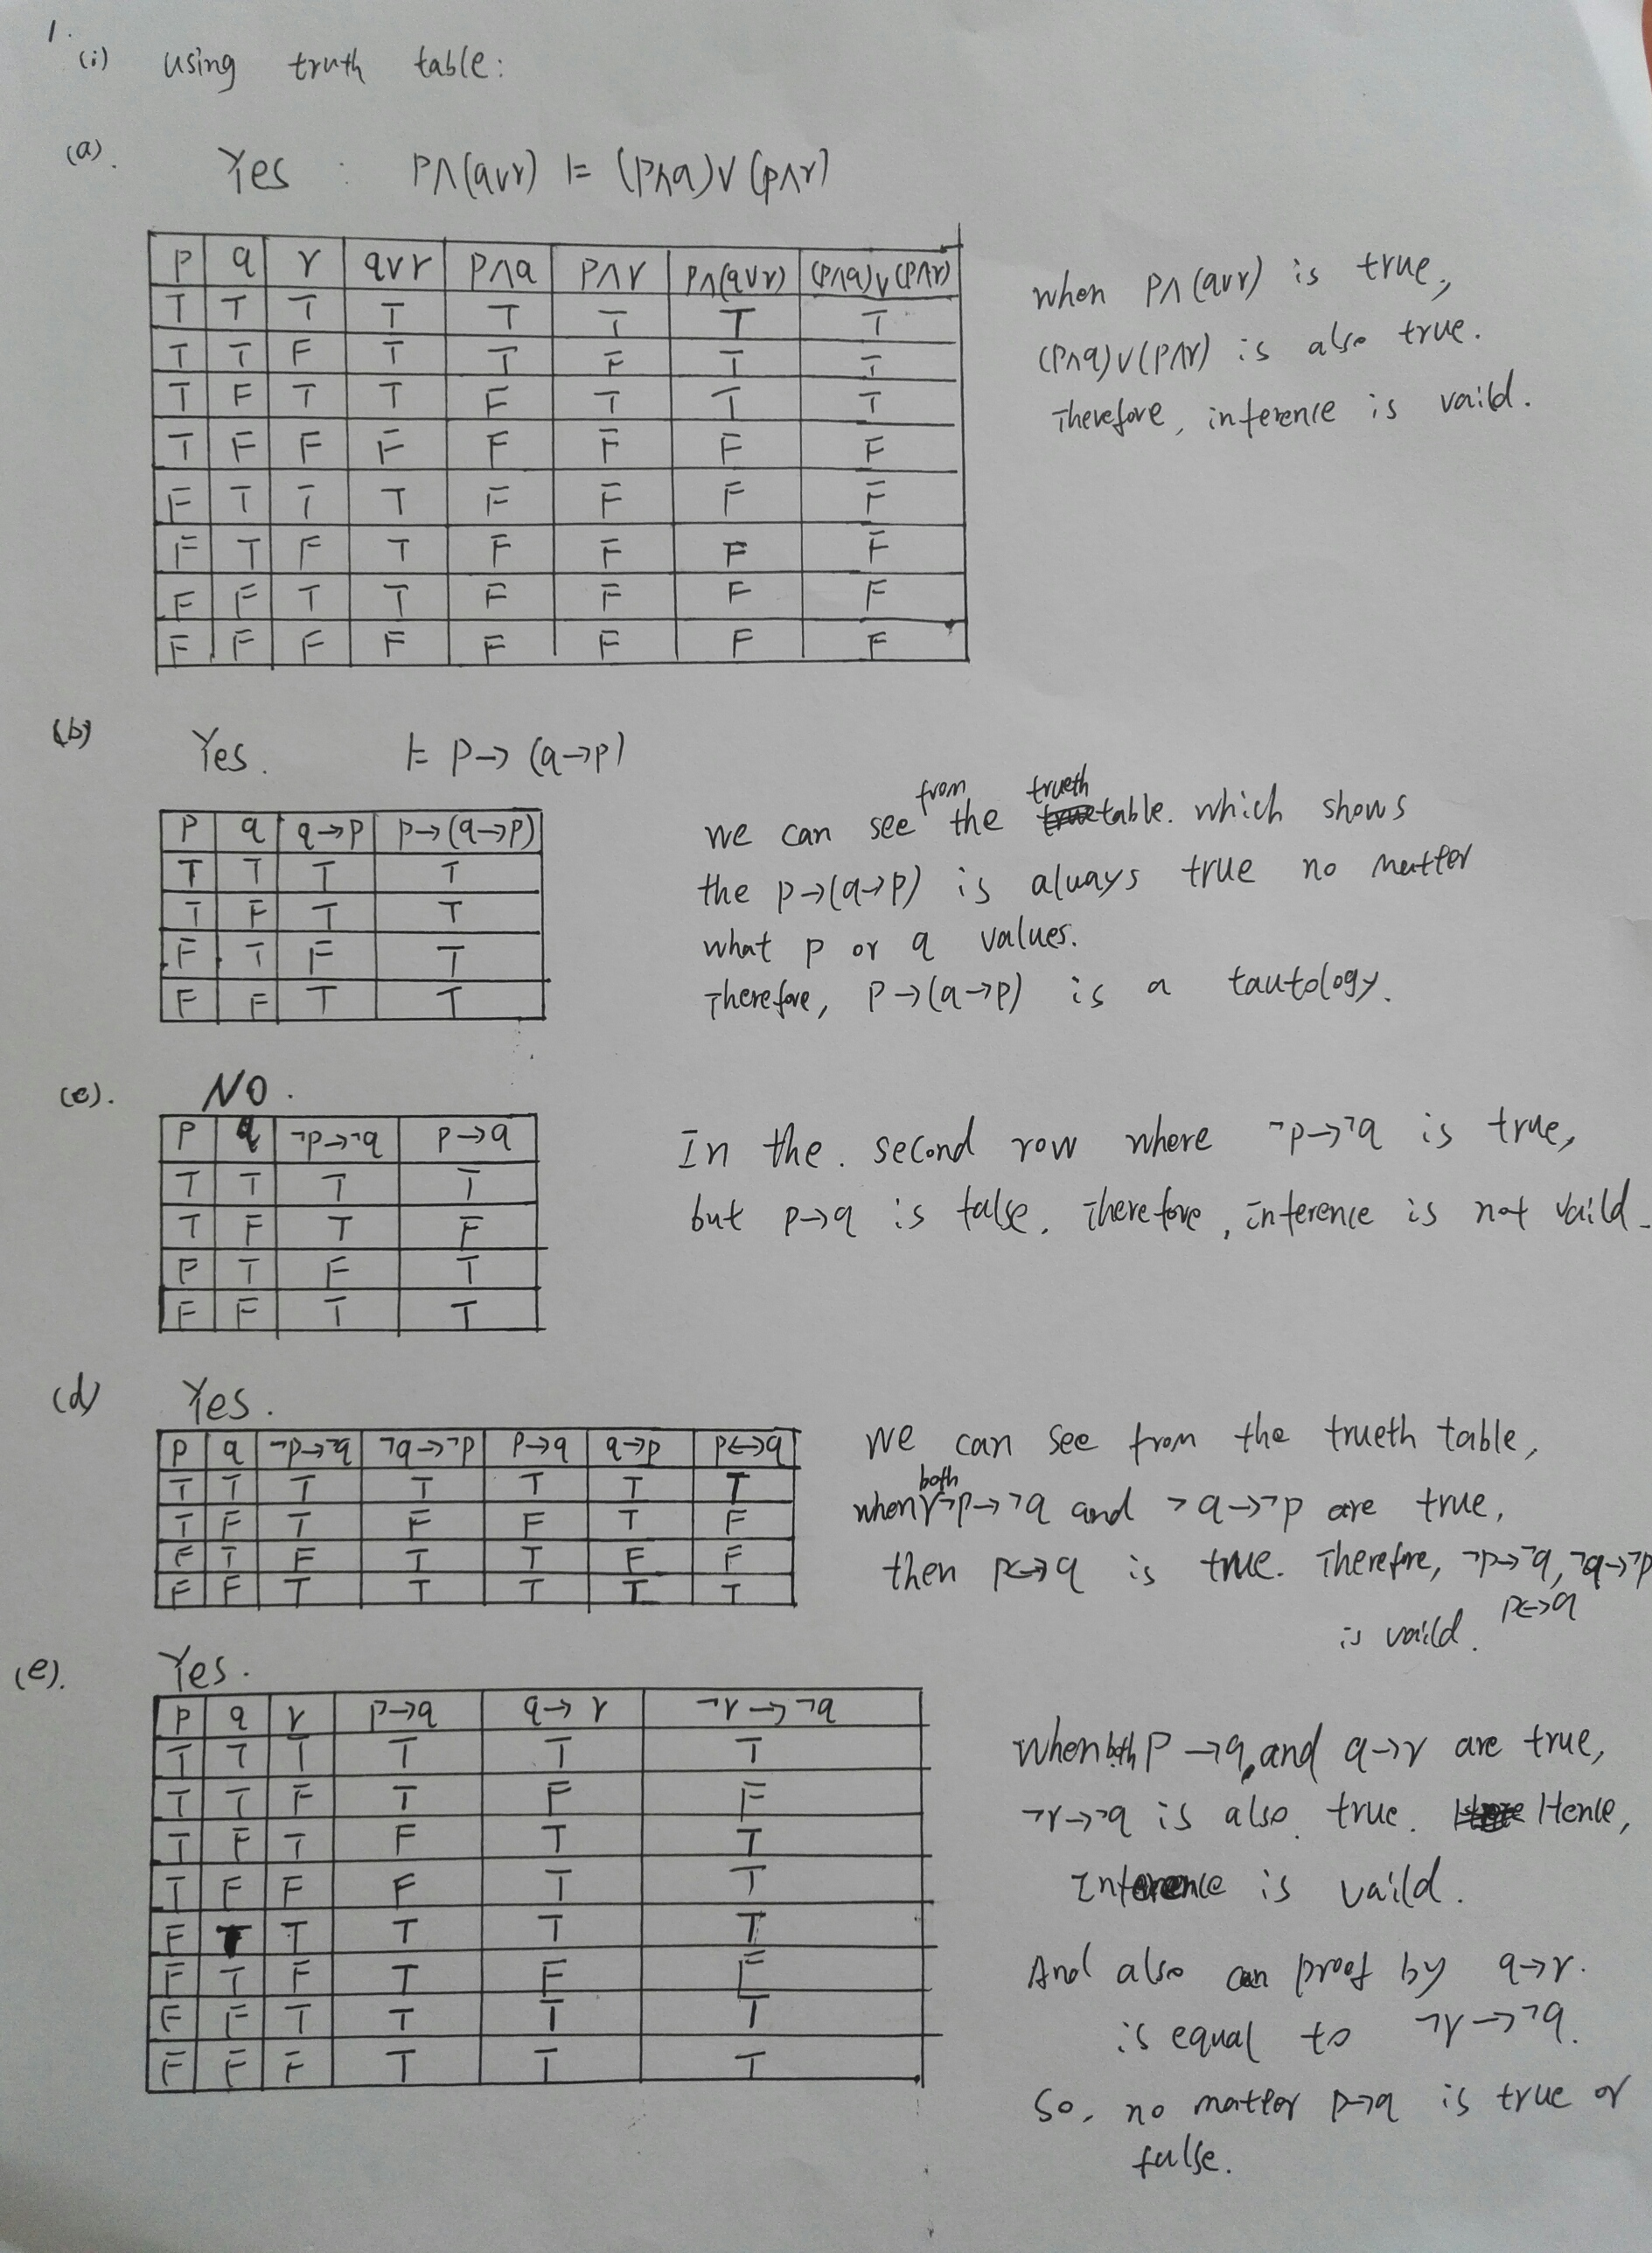 1.
(i) using truth table:
(a). Yes : P∧(q∨r) ⊨ (P∧q)∨(p∧r)
P q r q∨r P∧q P∧r P∧(q∨r) (P∧q)∨(P∧r)
T T T T T T T T
T T F T T F T T
T F T T F T T T
T F F F F F F F
F T T T F F F F
F T F T F F F F
F F T T F F F F
F F F F F F F F
when P∧(q∨r) is true,
(P∧q)∨(P∧r) is also true.
Therefore, inference is vaild.
(b) Yes. ⊨ P→(q→p)
P q q→p p→(q→p)
T T T T
T F T T
F T F T
F F T T
we can see from the trueth table. which shows
the p→(q→p) is always true no matter
what p or q values.
Therefore, P→(q→p) is a tautology.
(c). NO.
P q ¬P→¬q p→q
T T T T
T F T F
F T F T
F F T T
In the. second row where ¬p→¬q is true,
but p→q is false. Therefore, inference is not vaild.
(d) Yes.
P q ¬P→¬q ¬q→¬p P→q q→p p↔q
T T T T T T T
T F T F F T F
F T F T T F F
F F T T T T T
we can see from the trueth table,
when both ¬p→¬q and ¬q→¬p are true,
then p↔q is true. Therefore, ¬p→¬q, ¬q→¬p
p↔q
is vaild.
(e). Yes.
P q r p→q q→r ¬r→¬q
T T T T T T
T T F T F F
T F T F T T
T F F F T T
F T T T T T
F T F T F F
F F T T T T
F F F T T T
when both P→q, and q→r are true,
¬r→¬q is also. true. Hence,
Inference is vaild.
And also can proof by q→r.
is equal to ¬r→¬q.
So, no matter p→q is true or
false.